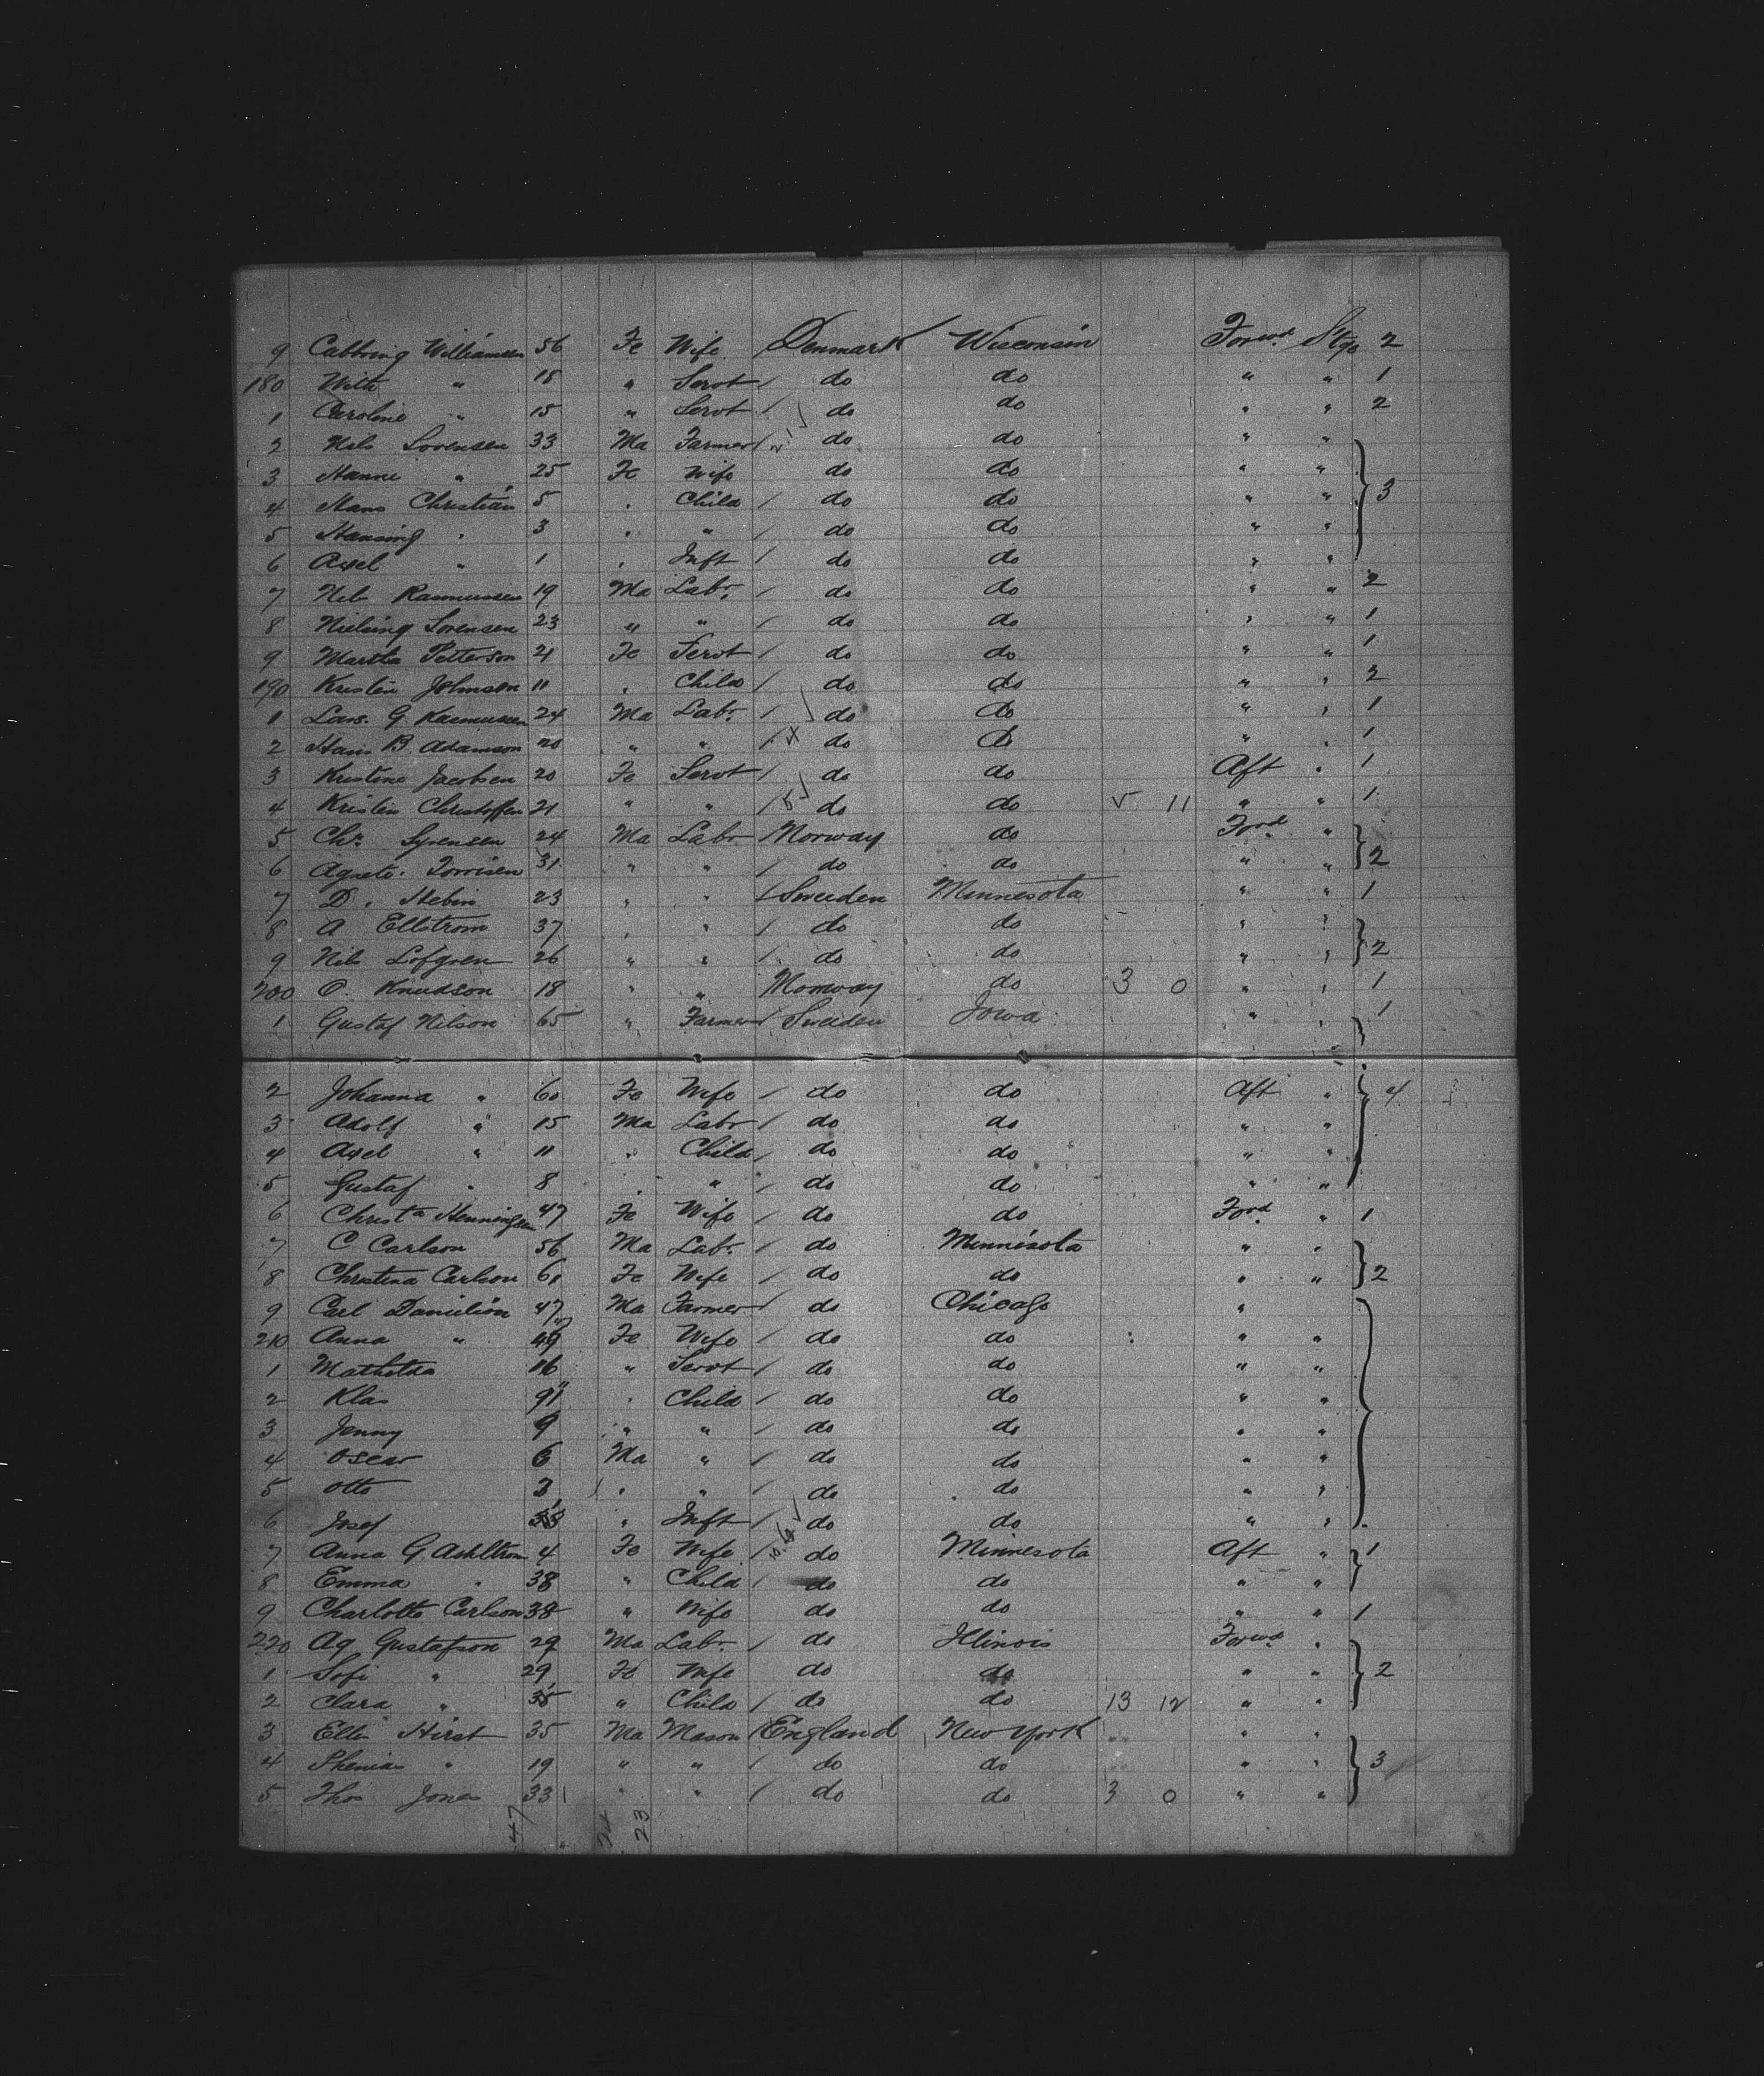 9 Cathring Williamsen 56 Fe Wife Denmark Wisconsin Forwd Stge 2
180 With " 18 " Servt do do " " 1
1 Caroline " 15 " Servt do do " " 2
2 Nils Sorensen 33 Ma Farmer do do " "
3 Hanne " 25 Fe Wife do do " " 3
4 Hans Christian 5 " Child do do " "
5 Hansing " 3 " " do do " "
6 Axel " 1 " Inft do do " "
7 Nils Rasmussen 19 Ma Labr. do do " " 2
8 Nielsing Sorensen 23 " " do do " " 1
9 Martha Petterson 21 Fe Servt do do " " 1
190 Kristin Johnson 11 " Child do do " " 2
1 Lars. G Rasmussen 24 Ma Labr. do do " " 1
2 Hans B. Adamson 20 " " X do do " " 1
3 Kristine Jacobsen 20 Fe Servt do do Aft " 1
4 Kristin Christoffen 21 " " do do 5 11 " " 1
5 Chr. Syrensen 24 Ma Labr Norway do Ford "
6 Agrete. Torrisen 31 " " do do " " 2
7 D. Hebin 23 " " Sweden Minnesota " " 1
8 A Ellstrom 37 " " do do " "
9 Nils Lofgren 26 " " do do " " 2
200 O. Knudson 18 " " Norway do 3 0 " " 1
1 Gustaf Nilson 65 " Farmer Sweden Iowa " " 1
2 Johanna " 60 Fe Wife do do Aft " 4
3 Adolf " 15 Ma Labr do do " "
4 Axel " 11 " Child do do " "
5 Gustaf " 8 " " do do " "
6 Christa Henningsen 47 Fe Wife do do Ford " 1
7 C Carlson 56 Ma Labr. do Minnisota " "
8 Christina Carlson 61 Fe Wife do do " " 2
9 Carl Danielson 47 Ma Farmer do Chicago "
210 Anna " Fe Wife do do " "
1 Mathilda 16 " Servt do do " "
2 Klas " Child do do " "
3 Jenny 9 " " do do " "
4 Oscar 6 Ma " do do " "
5 Otto 3 " " do do " "
6 Josef " Inft do do " "
7 Anna G Ashltrom 4 Fe Wife do Minnesota Aft " 1
8 Emma " 38 " Child do do " "
9 Charlotte Carlson 38 " Wife do do " " 1
220 Ag Gustafson 29 Ma Labr. do Illinois Forwd "
1 Sofi " 29 Fe Wife do do " " 2
2 Clara " " Child do do 13 12 " "
3 Ellis Hirst 35 Ma Mason England New York " "
4 " 19 " " do do " " 3
5 Thos Jones 33 " " do do 3 0 " "
47 24 23